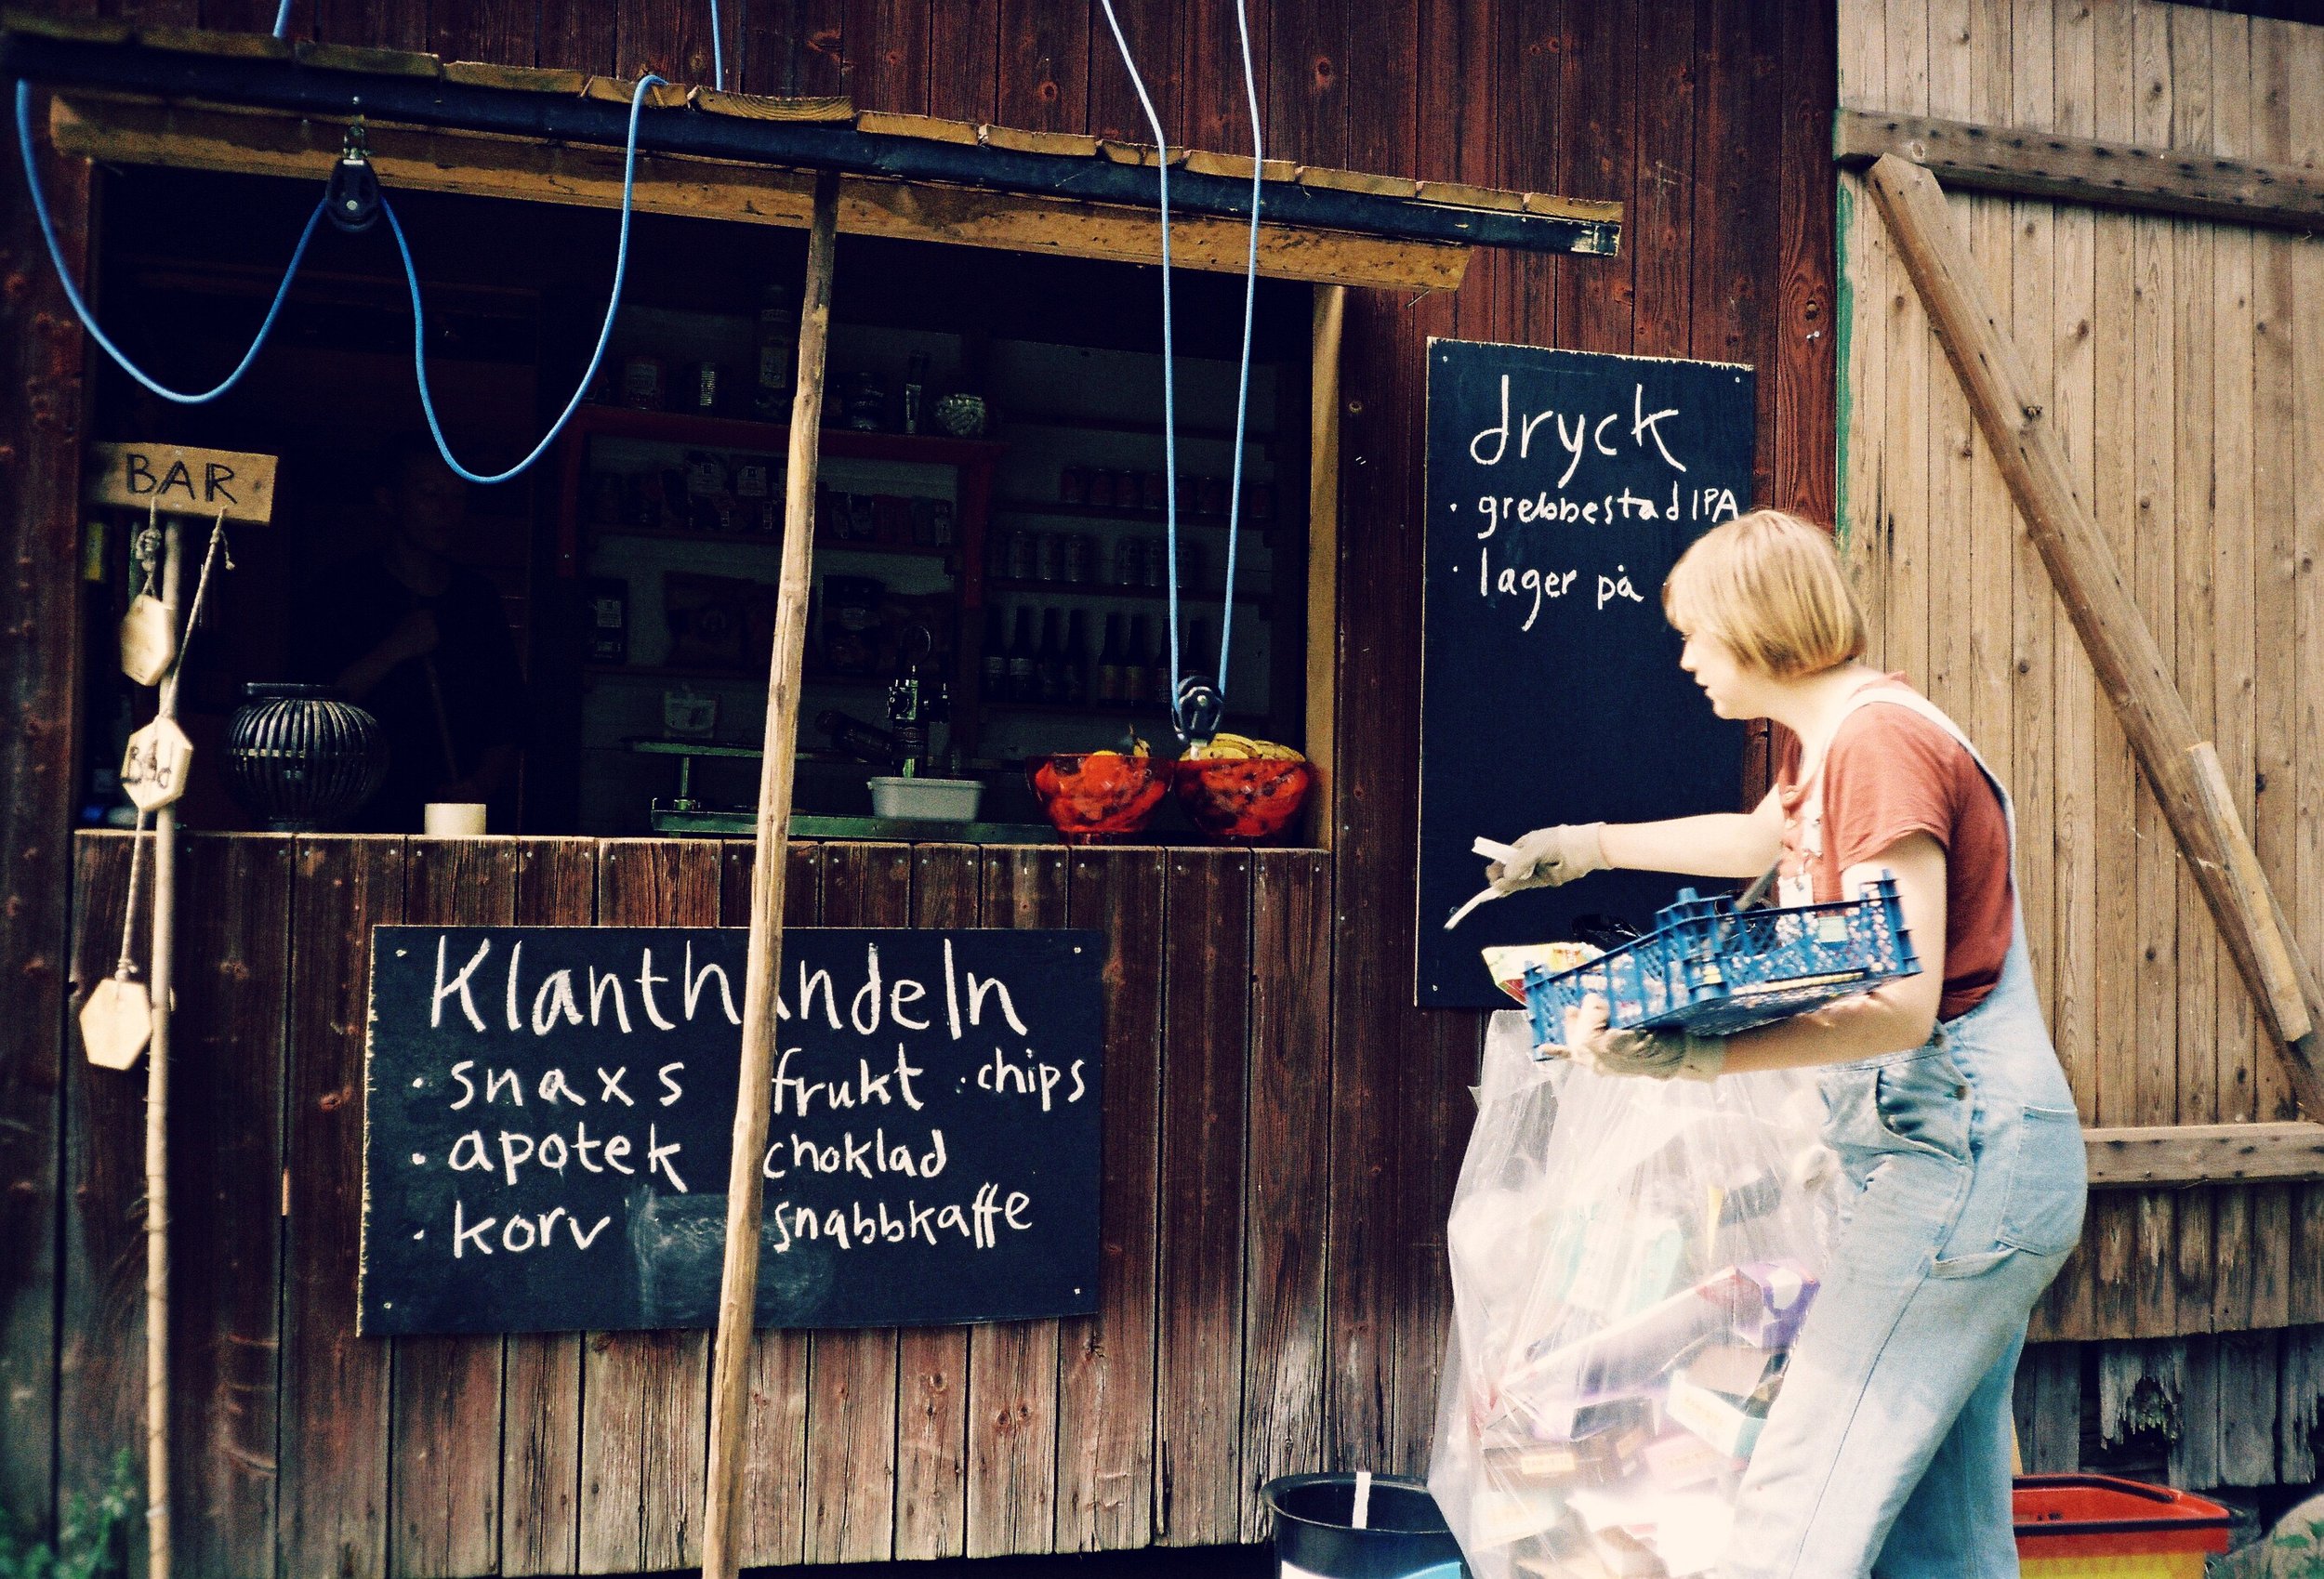 BAR
Båd
dryck
· grebbestad IPA
· lager på
Klanthandeln
· snaxs frukt · chips
· apotek choklad
· korv snabbkaffe